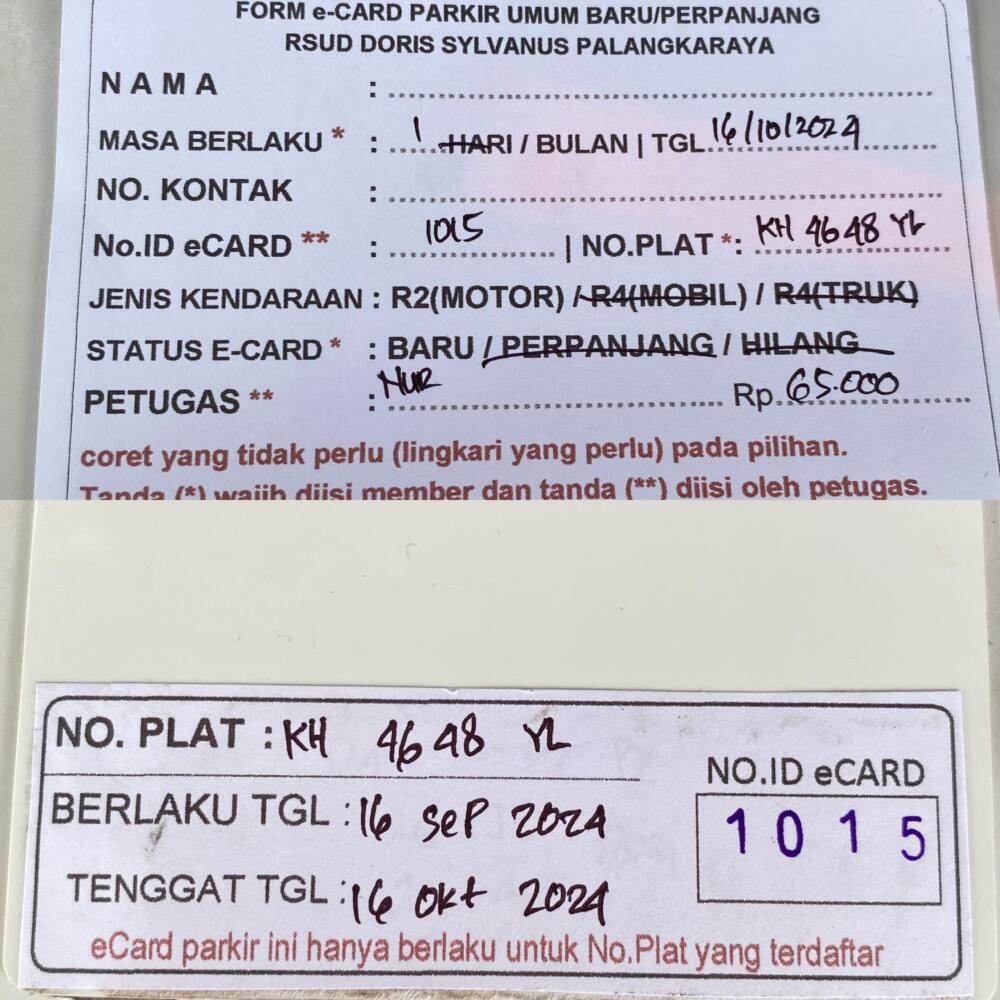 FORM e-CARD PARKIR UMUM BARU/PERPANJANG
RSUD DORIS SYLVANUS PALANGKARAYA
N A M A :
MASA BERLAKU * : 1 HARI / BULAN | TGL 16/10/2024
NO. KONTAK :
No.ID eCARD ** : 1015 | NO.PLAT *: KH 4648 YL
JENIS KENDARAAN : R2(MOTOR) / R4(MOBIL) / R4(TRUK)
STATUS E-CARD * : BARU / PERPANJANG / HILANG
PETUGAS ** : NUR Rp. 65.000
coret yang tidak perlu (lingkari yang perlu) pada pilihan.
Tanda (*) wajib diisi member dan tanda (**) diisi oleh petugas.
NO. PLAT : KH 4648 YL
NO.ID eCARD
BERLAKU TGL : 16 SEP 2024
1015
TENGGAT TGL : 16 OKt 2024
eCard parkir ini hanya berlaku untuk No.Plat yang terdaftar